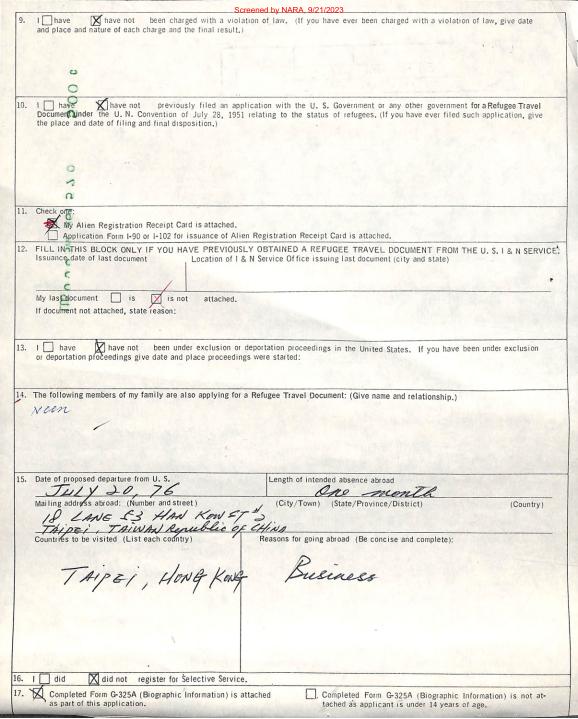 Screened by NARA, 9/21/2023
9. I ☐ have ☒ have not been charged with a violation of law. (If you have ever been charged with a violation of law, give date
and place and nature of each charge and the final result.)
10. I ☐ have ☒ have not previously filed an application with the U. S. Government or any other government for a Refugee Travel
Document under the U. N. Convention of July 28, 1951 relating to the status of refugees. (If you have ever filed such application, give
the place and date of filing and final disposition.)
11. Check one:
☒ My Alien Registration Receipt Card is attached.
☐ Application Form I-90 or I-102 for issuance of Alien Registration Receipt Card is attached.
12. FILL IN THIS BLOCK ONLY IF YOU HAVE PREVIOUSLY OBTAINED A REFUGEE TRAVEL DOCUMENT FROM THE U. S. I & N SERVICE:
Issuance date of last document Location of I & N Service Office issuing last document (city and state)
My last document ☐ is ☒ is not attached.
If document not attached, state reason:
13. I ☐ have ☒ have not been under exclusion or deportation proceedings in the United States. If you have been under exclusion
or deportation proceedings give date and place proceedings were started:
14. The following members of my family are also applying for a Refugee Travel Document: (Give name and relationship.)
15. Date of proposed departure from U. S. Length of intended absence abroad
JULY 20, 76 One month
Mailing address abroad: (Number and street) (City/Town) (State/Province/District) (Country)
18 LANE 53 HAN KOW ST #2
TAIPEI, TAIWAN Republic of CHINA
Countries to be visited (List each country) Reasons for going abroad (Be concise and complete):
TAIPEI, HONG KONG Business
16. I ☐ did ☒ did not register for Selective Service.
17. ☒ Completed Form G-325A (Biographic Information) is attached ☐ Completed Form G-325A (Biographic Information) is not at-
as part of this application. tached as applicant is under 14 years of age.